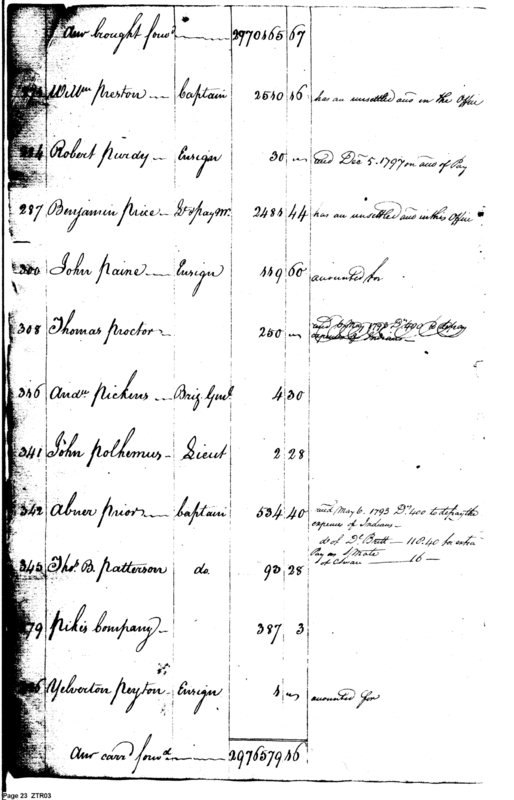 Amt brought forwd 2970865 67
Willm Preston Captain 2580 86 has an unsettled acct in the Office
Robert Purdy Ensign 30 " recd Decr 5. 1797 on acct of Pay
287 Benjamin Price Lt & Pay Mr. 2484 44 has an unsettled acct in this Office
300 John Paine Ensign 449 60 accounted for
308 Thomas Proctor 250 "
recd May 1793 Drs 400 to defray
expenses of Indians
Andw Pickens Brig Genl 4 30
341 John Polhemus Lieut 2 28
342 Abner Prior Captain 534 40 recd May 6. 1793 Drs 400 to defray the
expense of Indians
do of Dr Brett 118.40 for extra
Pay as S/ Mate
of Swan 16
345 Thos B. Patterson do. 90 28
79 Pikes Company 387 3
Yelverton Peyton Ensign 8 " accounted for
Amt carrd forwd 2976579 86
Page 23 ZTR03